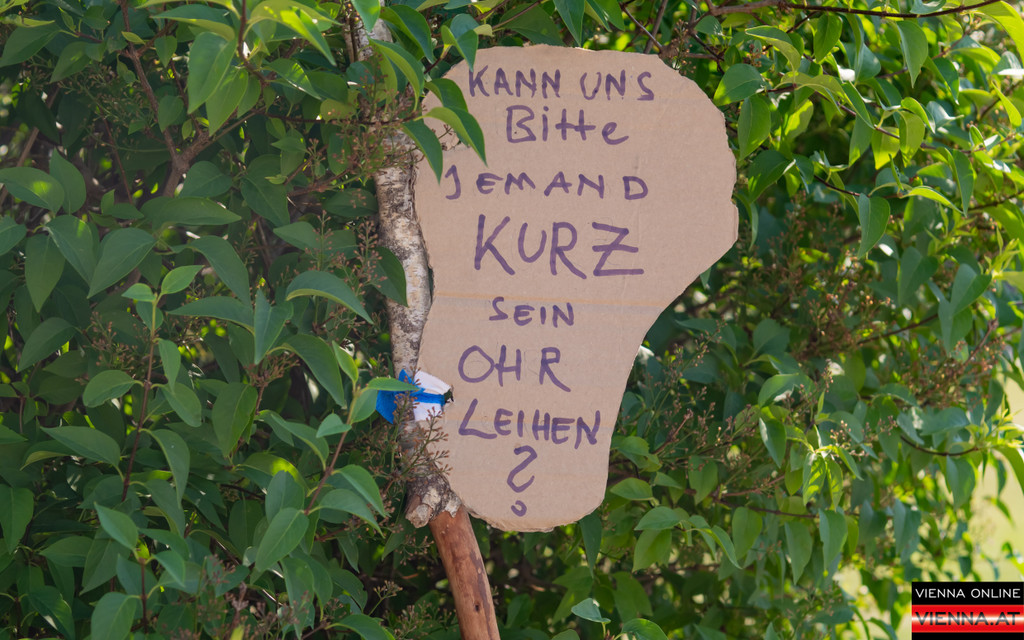 KANN UNS
Bitte
JEMAND
KURZ
SEIN
OHR
LEIHEN
?
VIENNA ONLINE
VIENNA.AT